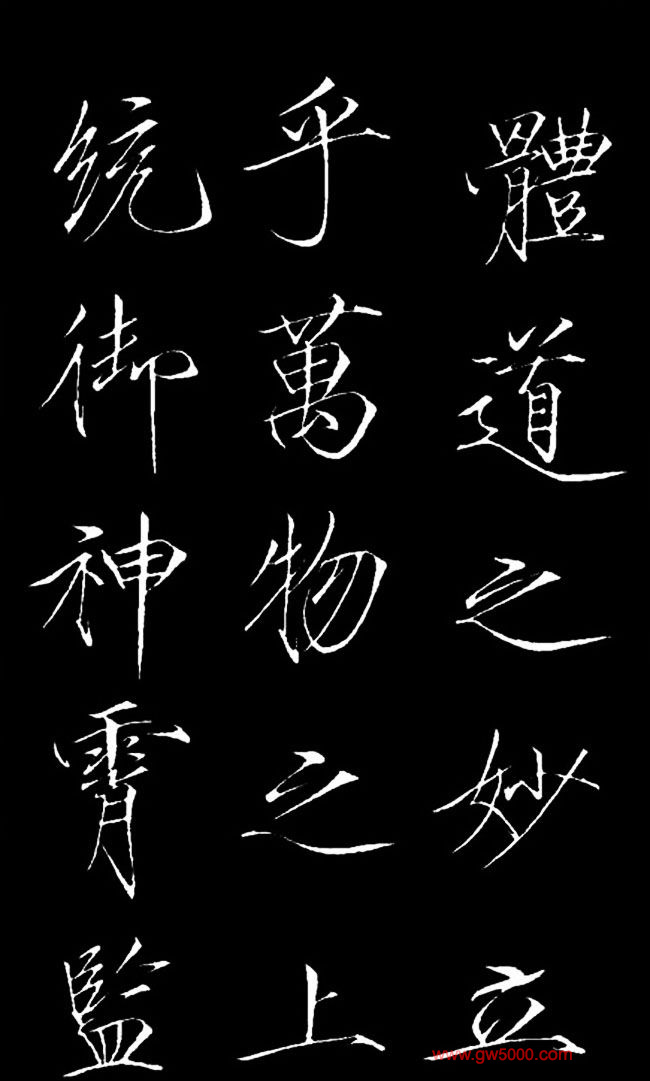 體道之妙立
乎萬物之上
統御神霄監
www.gw5000.com